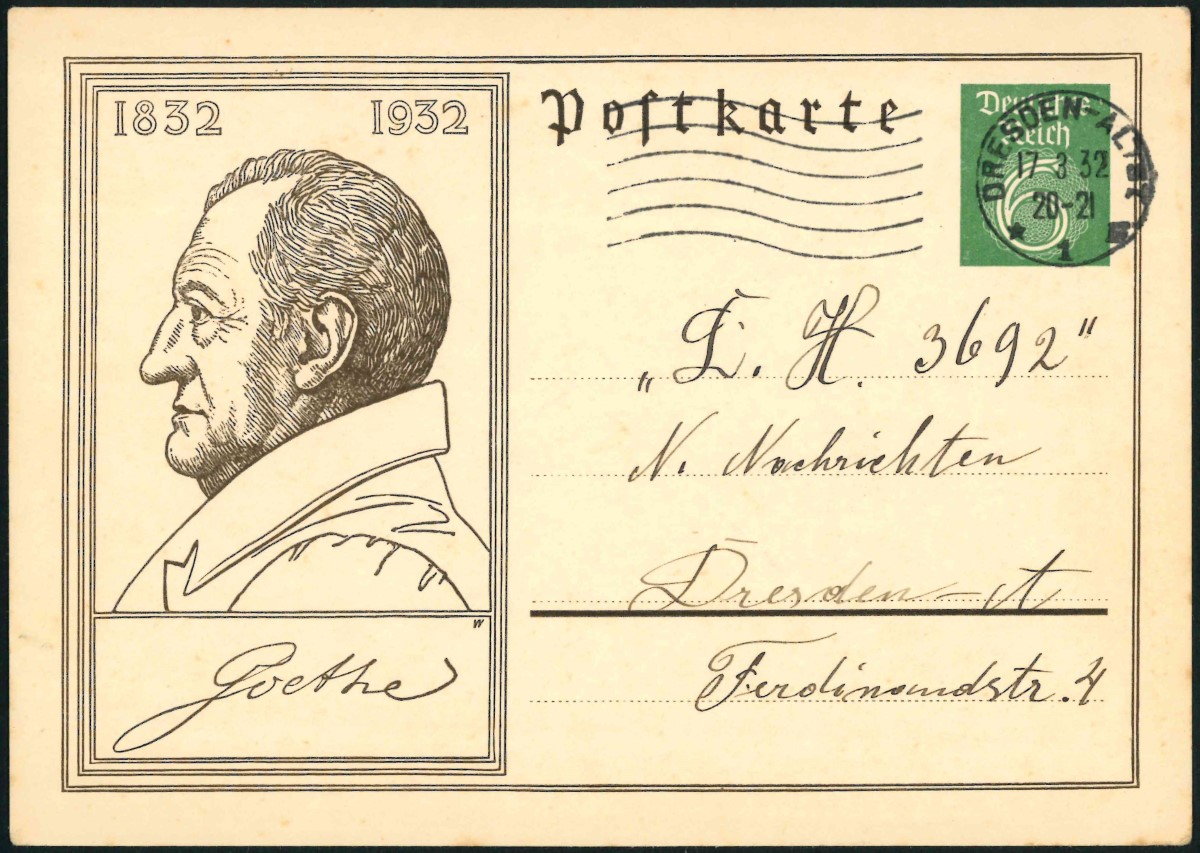 1832 1932
Goethe
W
Postkarte
Deutsches Reich
6
DRESDEN-ALTST.
17 3 32
20-21
* 1
„E. H. 3692"
N. Nachrichten
Dresden-A
Ferdinandstr. 4